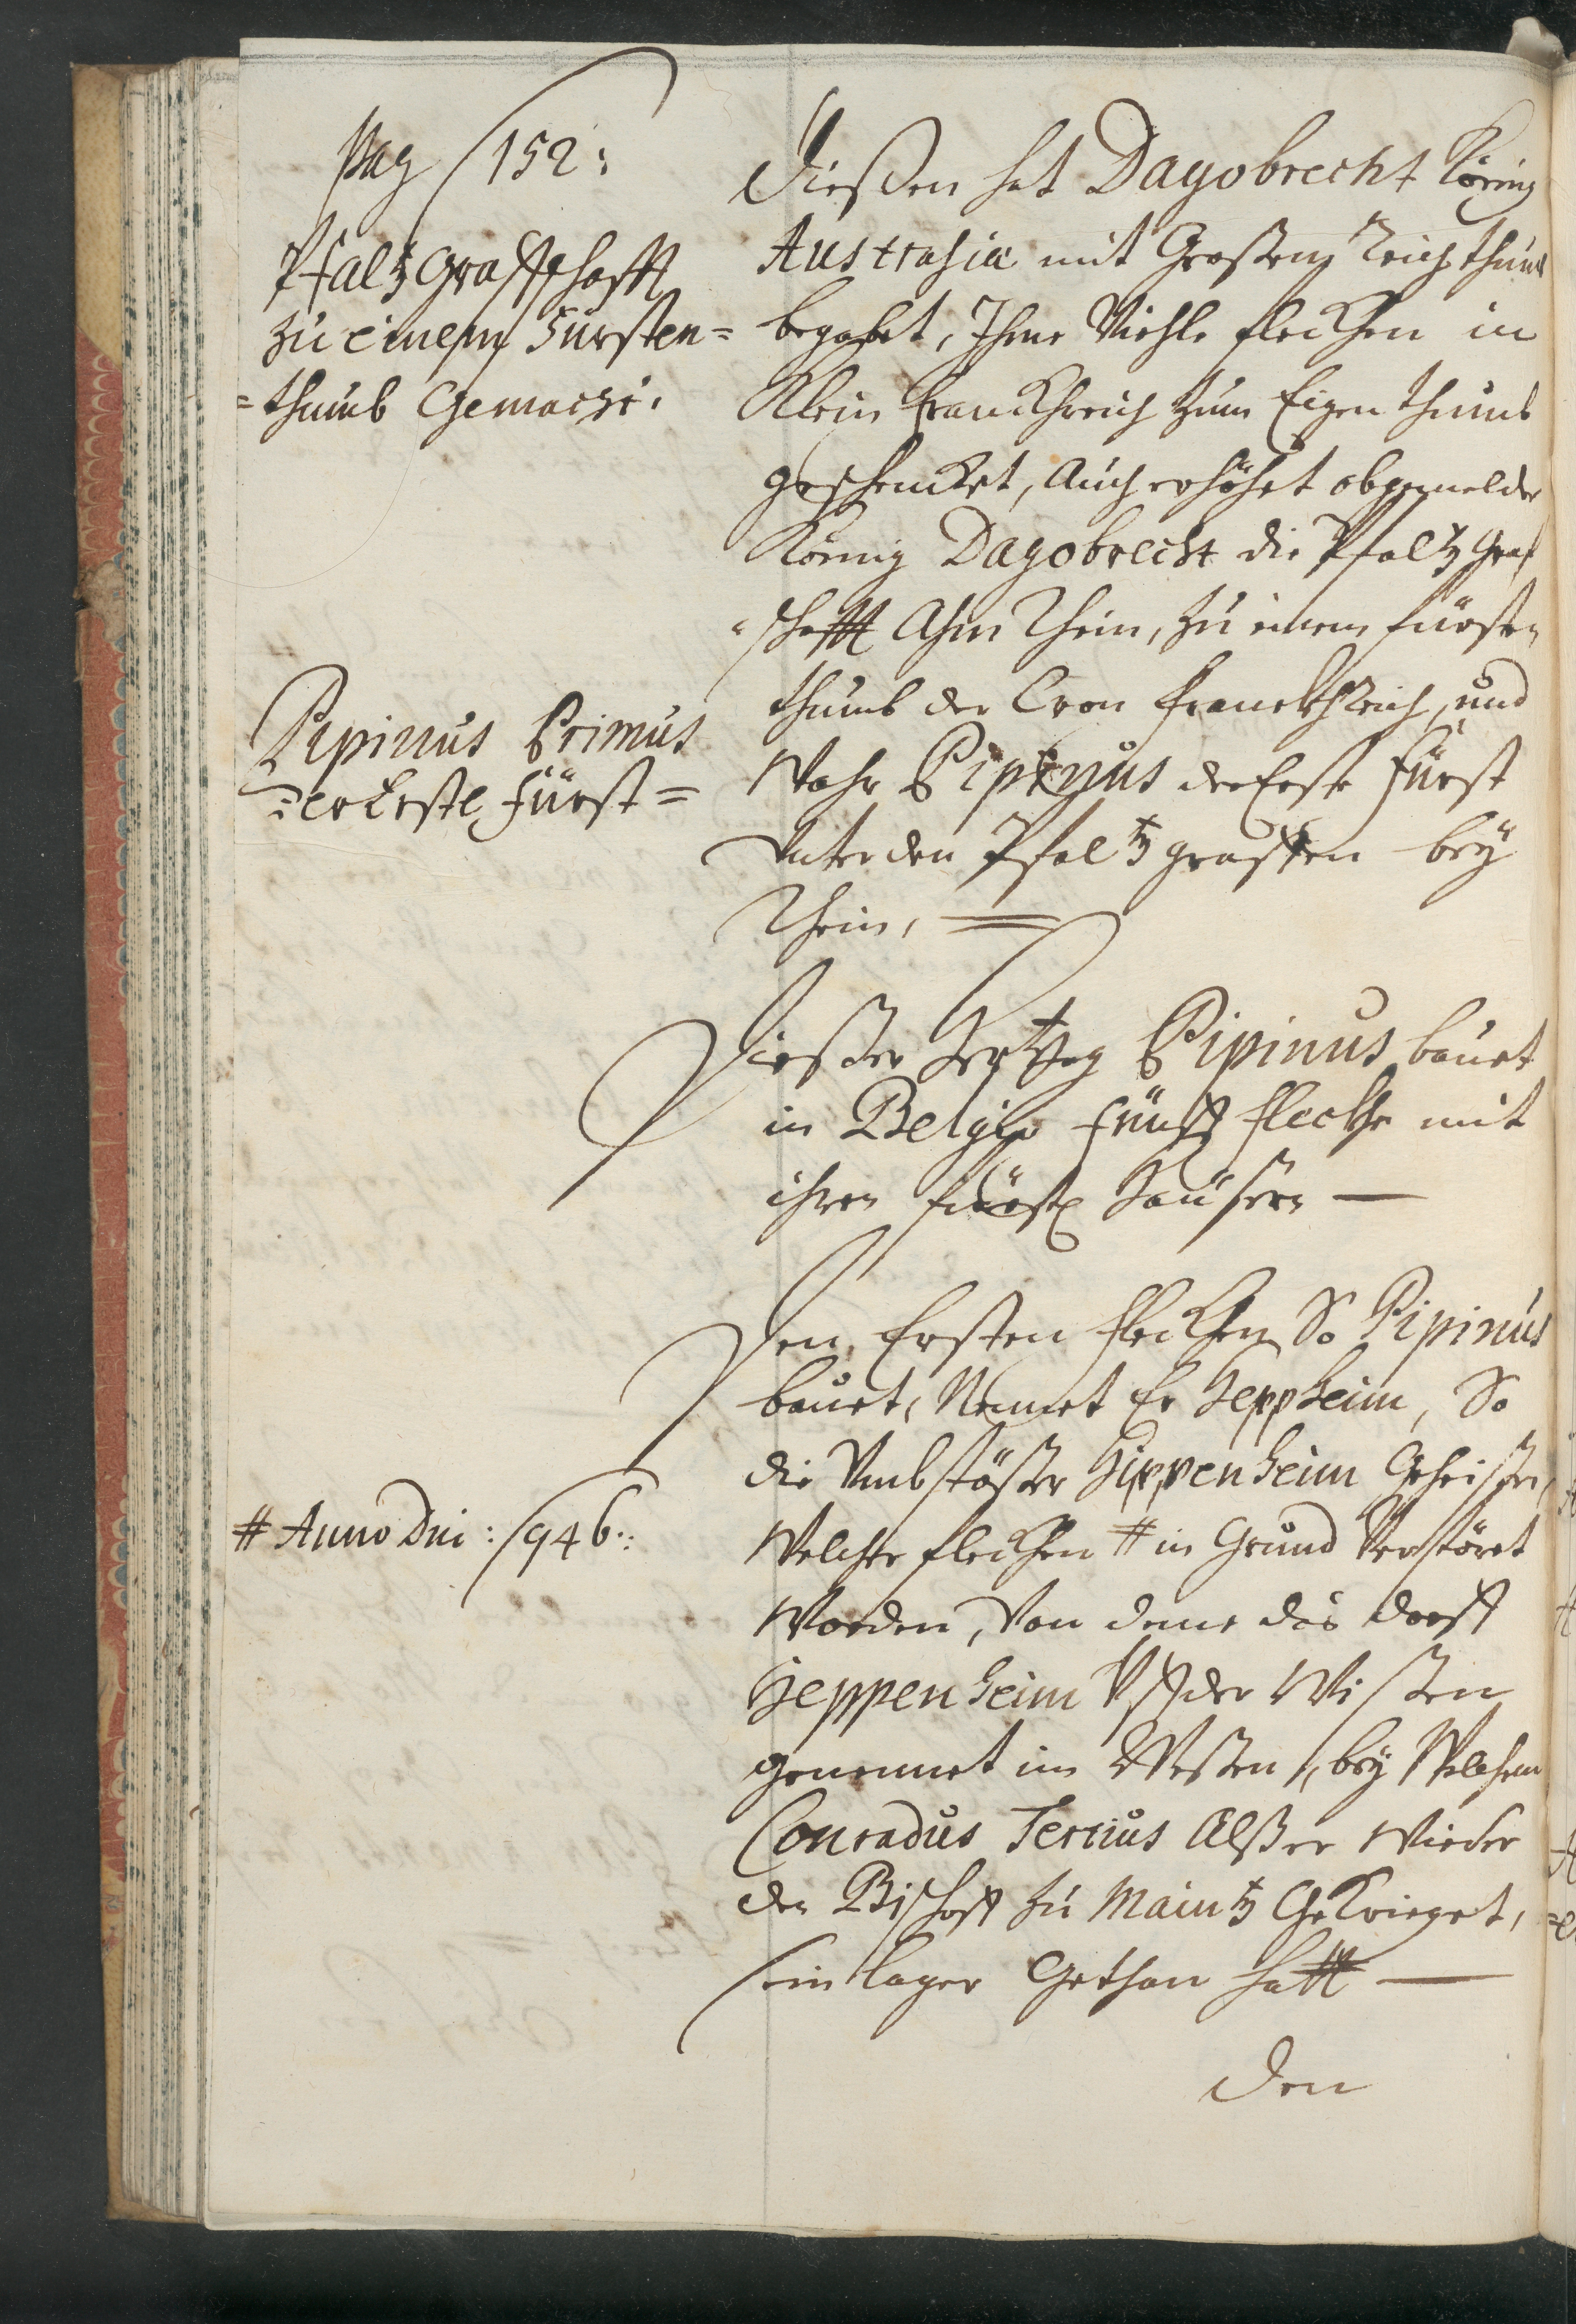 pag 152:
Pfaltzgraffschafft
zu einem Fürsten=
=thumb Gemacht.
Dießen hat Dagobrecht König
Austrasiæ mit Großem Reichthumb
begabet, Ihme Viehle fleckhen in
Klein Franckhreich zum Eigenthumb
geschencket, Auch erhöhet obgemelder
König Dagobrecht die Pfaltzgraf
schafft Ahm Rhein, zu einem fürsten
thumb der Cron franckhReich, und
Wahr Pipinus der Erste Fürst
Unter den Pfaltzgraffen bey
Rhein,
Pipinus Primus
der Erste Fürst=
Dießer Hertzog Pipinus bauet
in Belgio fünff fleckhe mit
ihren fürstl Häußern —
Den Ersten fleckhen So Pipinus
bauet, Nennet Er Heppheim, So
die Umbstößer Hippenheim Geheißen,
Welcher fleckhen # in Grund Verstöret
# Anno Dni: 946:
Worden, Von deme das dorff
Heppenheim Uff der Wißen
genennet im Weßen, bey Welchem
Conradus Tertius Alß er Wieder
den Bischoff zu Maintz Gekrieget,
sein lager Gethan hatt —
Den